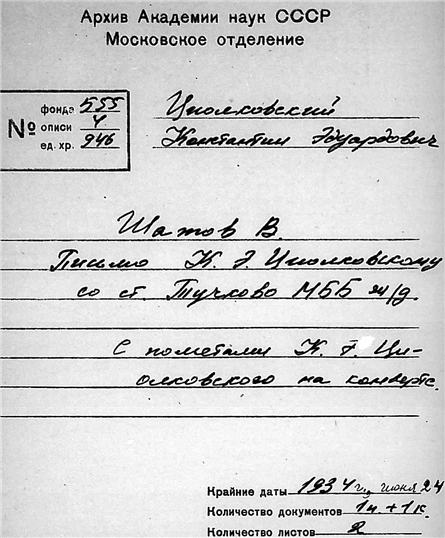 Архив Академии наук СССР
Московское отделение
фонда 555
№ описи 4
ед. хр. 946
Циолковский
Константин Эдуардович
Шатов В.
Письмо К. Э. Циолковскому
со ст. Тучково МББ ж/д.
С пометами К. Э. Ци-
олковского на конверте.
Крайние даты 1934 г., июня 24
Количество документов 1п.+1к.
Количество листов 2